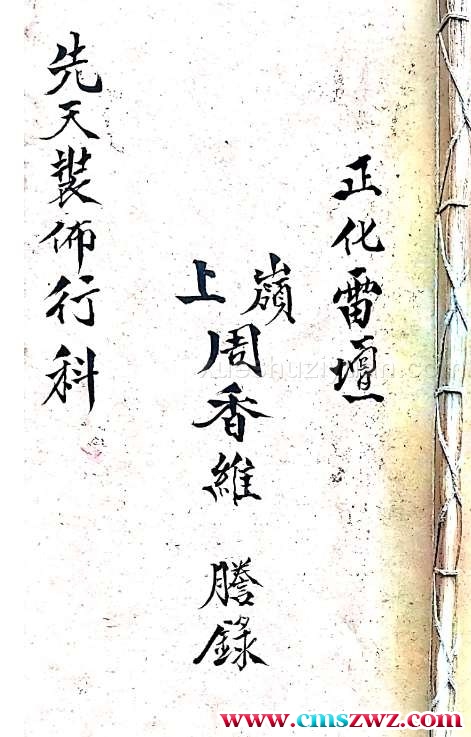 正化雷壇
嶺上周香維 謄錄
先天裝佈行科
www.cmszwz.com